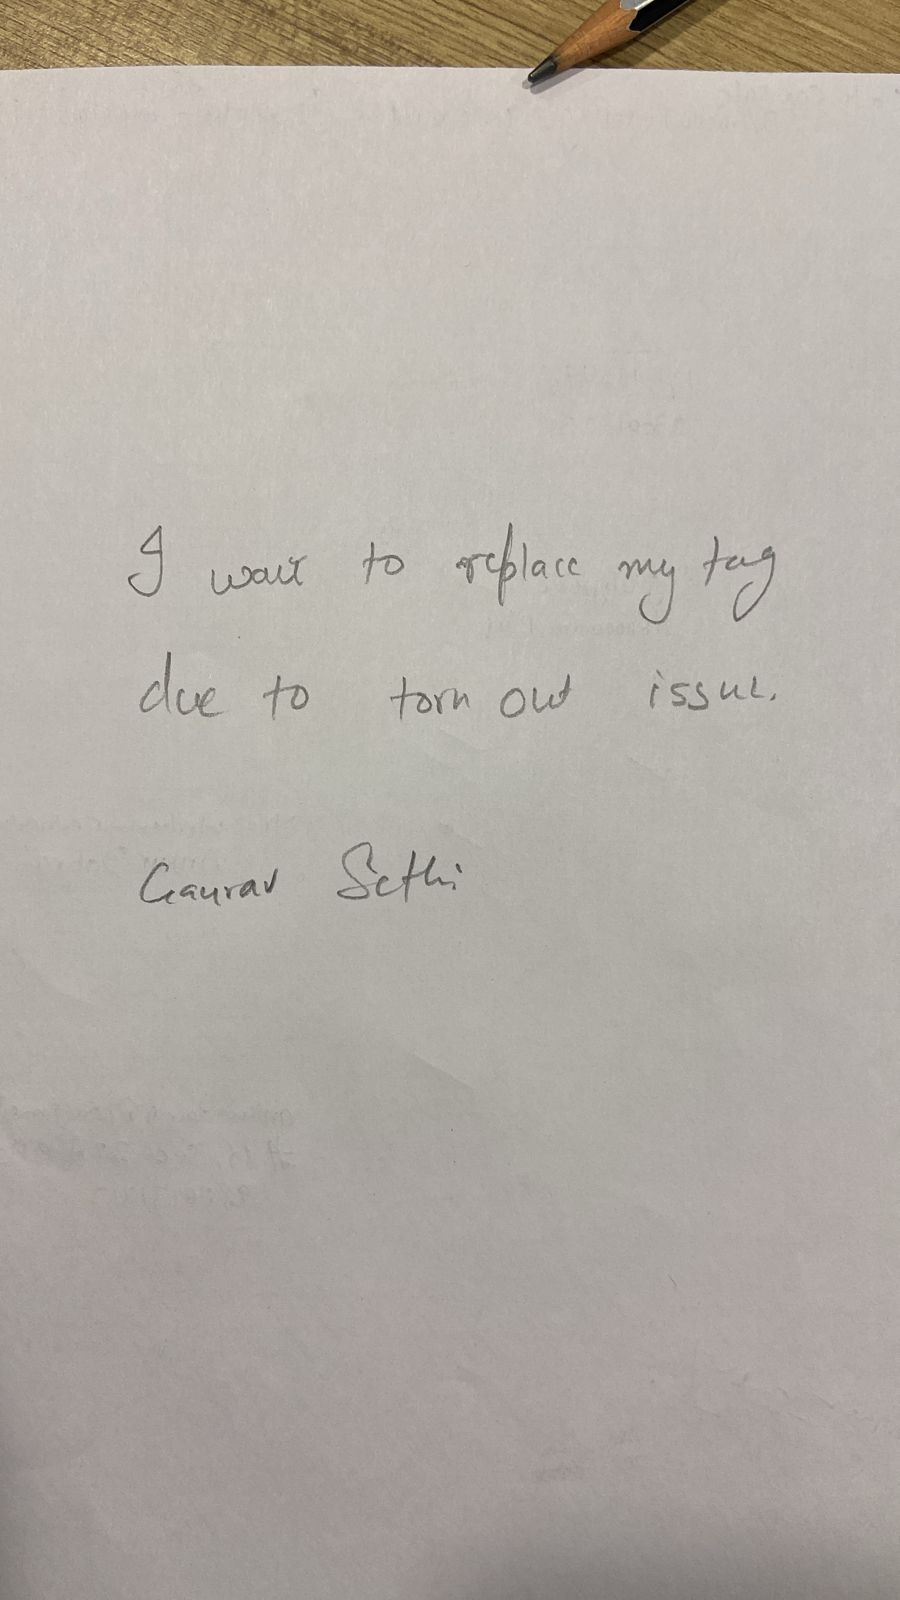 I want to replace my tag
due to torn out issue.
Gaurav Sethi